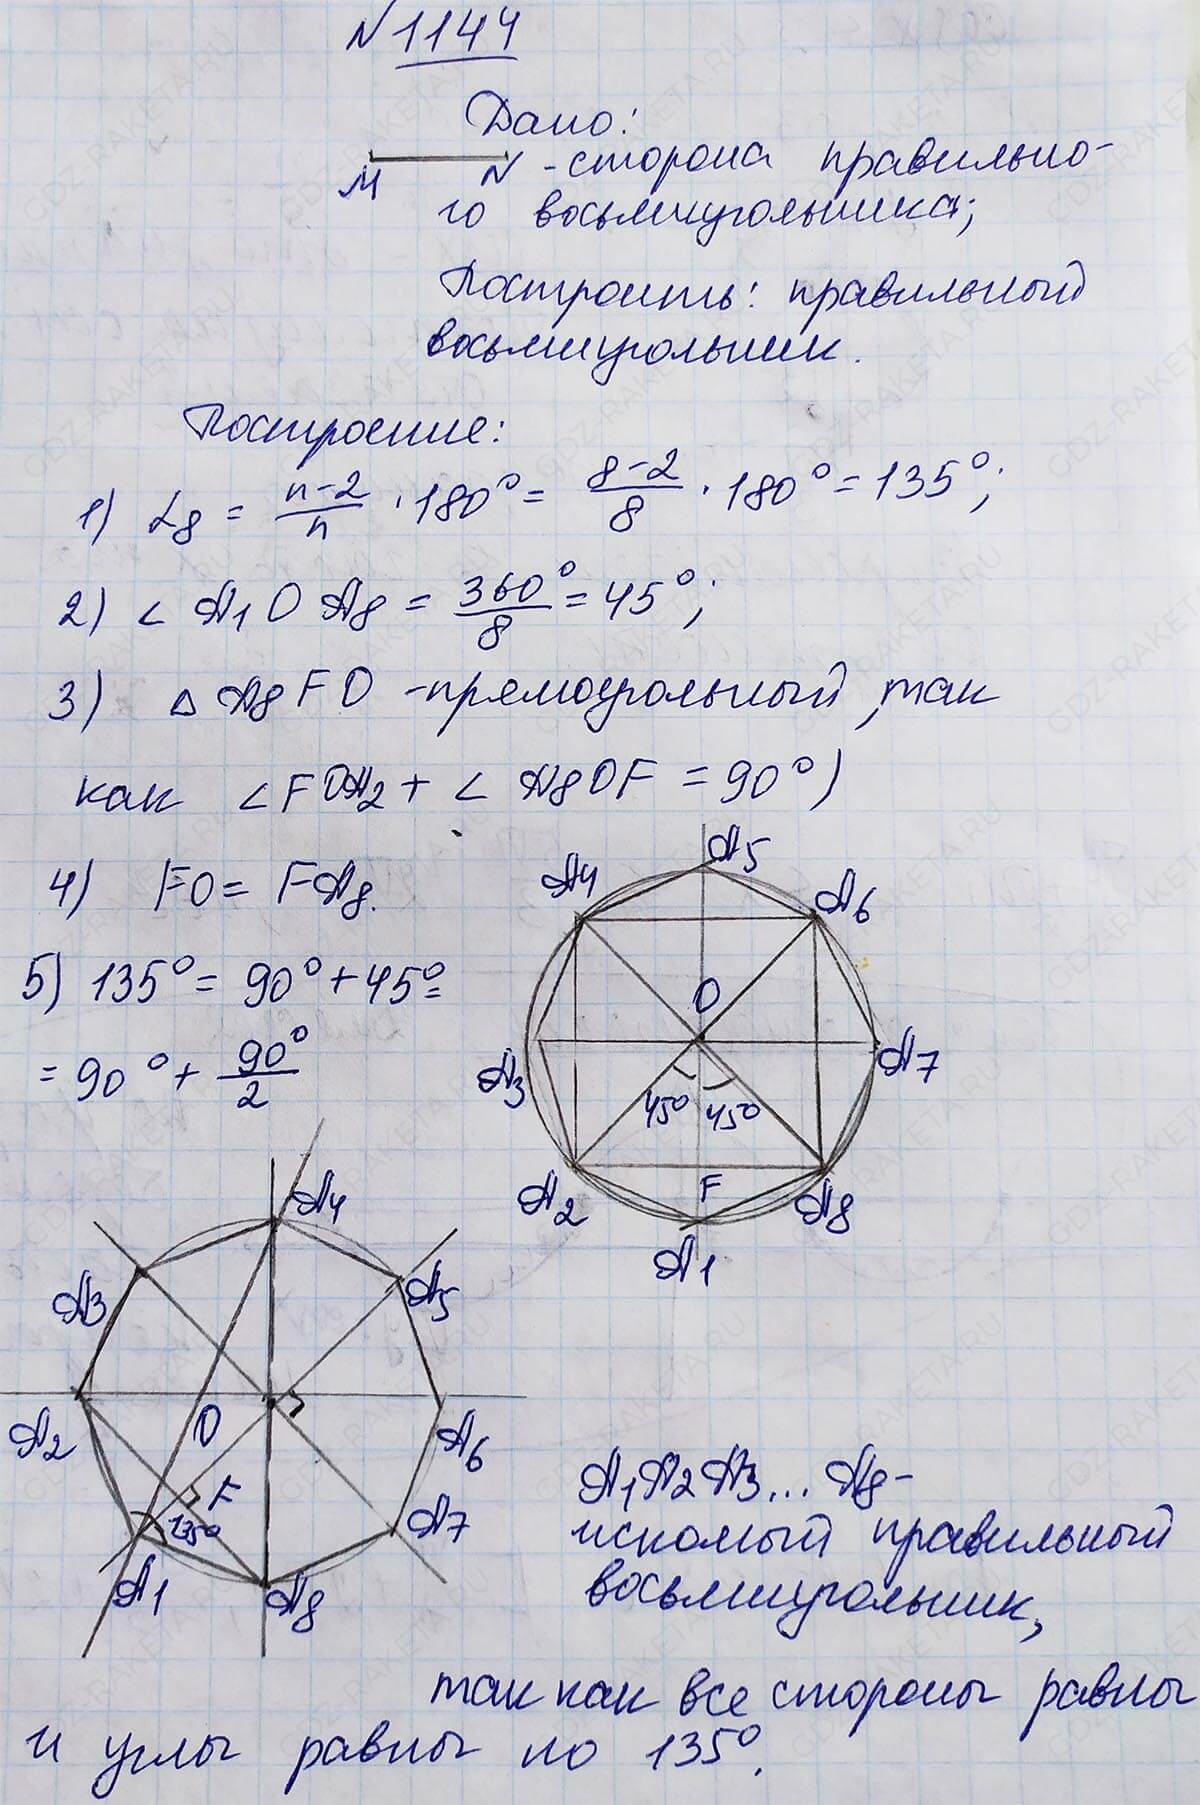 N1144
Дано:
M N - сторона правильно-
го восьмиугольника;
Построить: правильный
восьмиугольник.
Построение:
1) α8 = n-2/n · 180° = 8-2/8 · 180° = 135°;
2) ∠ A1 O A8 = 360°/8 = 45°;
3) △ A8 F O - прямоугольный, так
как ∠FOA2 + ∠ A8OF = 90°)
4) FO = FA8.
5) 135° = 90° + 45° =
= 90° + 90°/2
A4 A5 A6
O
A3 A7
45° 45°
A2 F A8
A1
A4
A3 A5
A2 O A6
F
135° A7
A1 A8
A1A2A3... A8 -
искомый правильный
восьмиугольник,
так как все стороны равны
и углы равны по 135°.
GDZ-RAKETA.RU